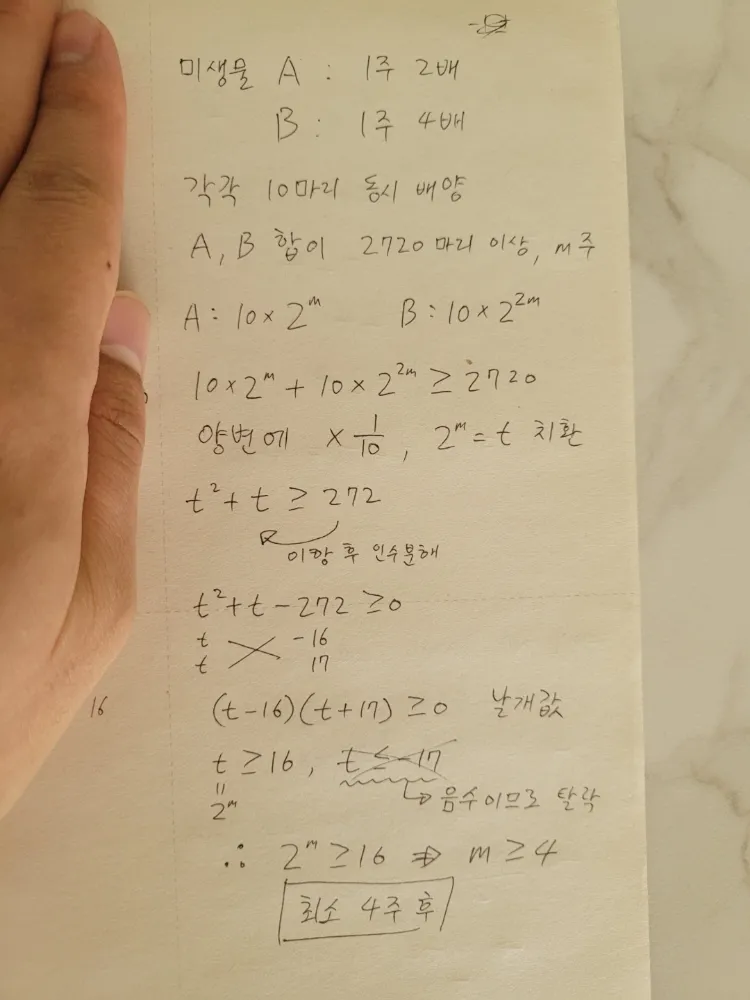 미생물 A : 1주 2배
B : 1주 4배
각각 10마리 동시 배양
A, B 합이 2720 마리 이상, m주
A : 10 × 2^m B : 10 × 2^2m
10 × 2^m + 10 × 2^2m ≥ 2720
양변에 × 1/10 , 2^m = t 치환
t² + t ≥ 272
이항 후 인수분해
t² + t - 272 ≥ 0
t -16
t 17
16 (t-16)(t+17) ≥ 0 날개값
t ≥ 16 , t ≤ -17
=
2^m → 음수이므로 탈락
∴ 2^m ≥ 16 ⇒ m ≥ 4
최소 4주 후